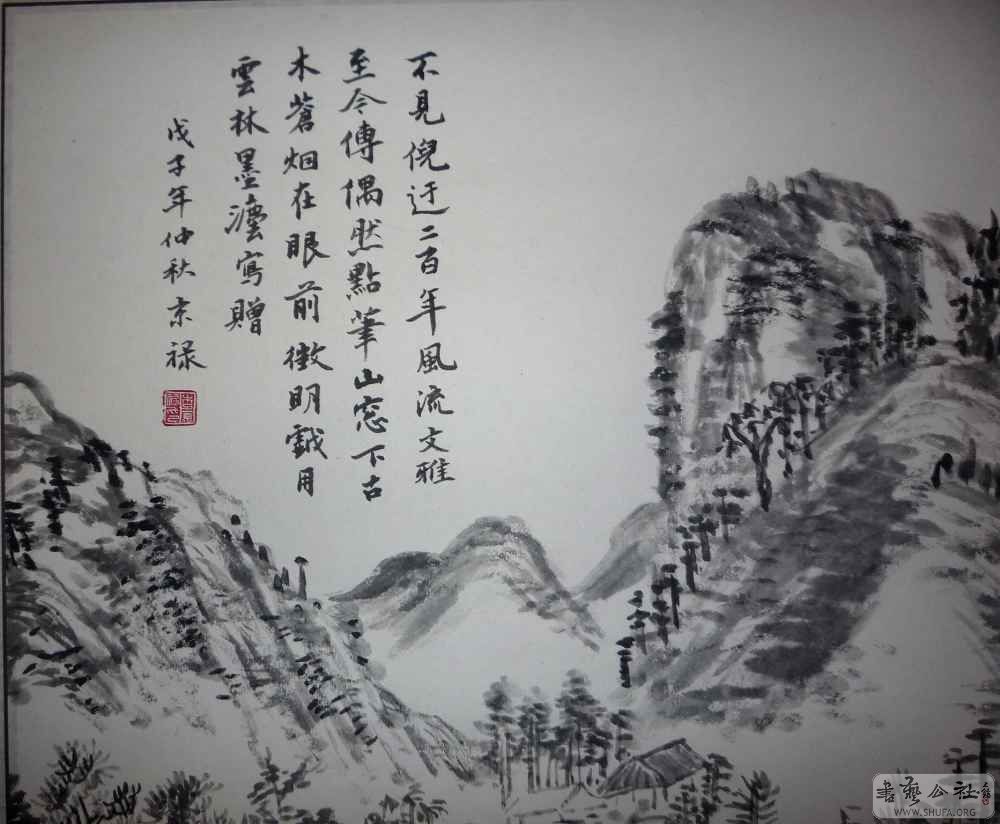 不見倪迂二百年風流文雅
至今傳偶然點筆山窓下古
木蒼烟在眼前徵明戲用
雲林墨灋寫贈
戊子年仲秋京禄
書藝公社
WWW.SHUFA.ORG